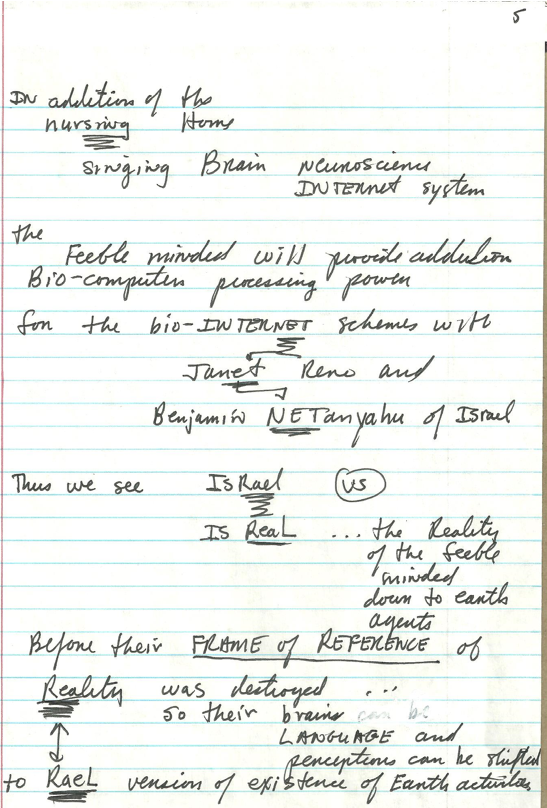 5
IN addition of the
nursing Home
singing Brain neuroscience
INTERnet system
the
Feeble minded will provide addution
Bio-computer processing power
for the bio-INTERNET schemes with
Janet Reno and
Benjamin NETanyahu of Israel
Thus we see IsRael VS
IS ReaL ... the Reality
of the feeble
minded
down to earth
agents
Before their FRAME of REFERENCE of
Reality was destroyed ...
so their brains can be
LANGUAGE and
perceptions can be shifted
to RaeL version of existence of Earth activities